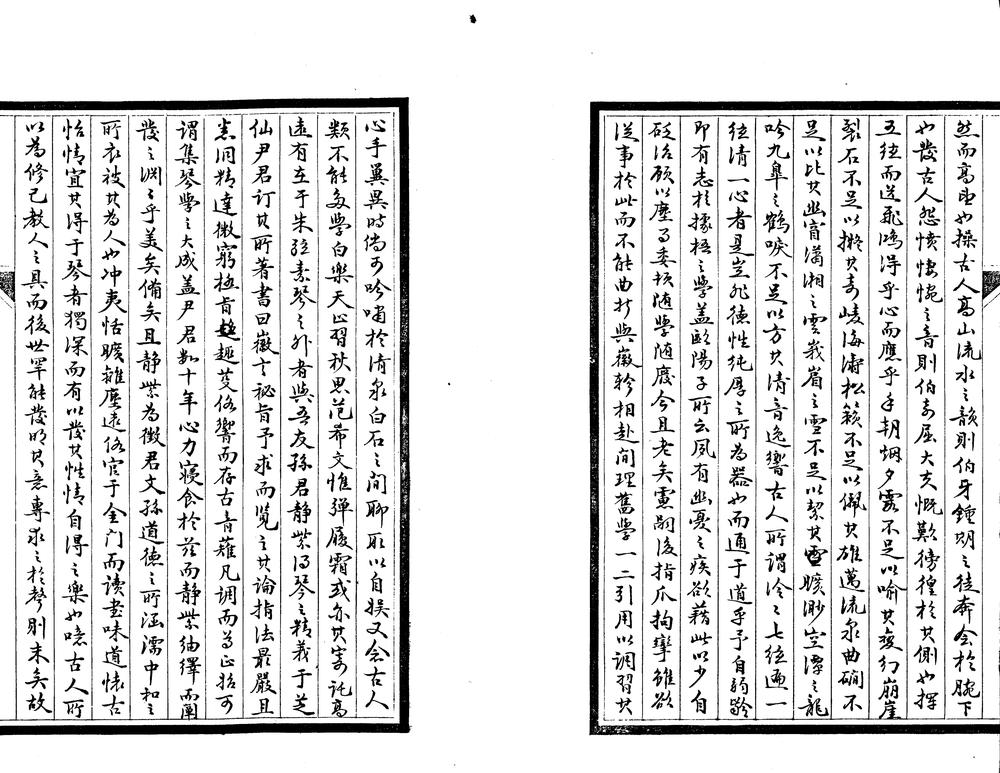 然而高望也操古人高山流水之韻則伯牙鍾期之徒奔會於腕下
也發古人怨憤悽惋之音則伯奇屈大夫慨歎徬徨於其側也揮
五絃而送飛鴻得乎心而應乎手朝烟夕靄不足以喻其變幻崩崖
裂石不足以擬其奇崚海濤松籟不足以佩其雄邁流泉曲磵不
足以比其幽窅瀟湘之雲峩眉之雪不足以絜其曠渺空潭之龍
吟九皐之鶴唳不足以方其清音逸響古人所謂泠泠七絃遍一
絃清一心者是豈非德性純厚之所為器也而通于道乎予自弱齡
即有志於據梧之學蓋歐陽子所云夙有幽憂之疾欲藉此以少自
砭治顧以塵了委頓隨學随廢今且老矣憲嗣後指爪拘攣雖欲
從事於此而不能曲折與徽軫相赴间理舊學一二引用以調習其
心手翼異時倘可吟嘯於清泉白石之間聊取以自娱又念古人
類不能多學白樂天止習秋思范希文惟彈履霜或亦其寄託高
遠有在于朱絃素琴之外者與吾友孫君静紫得琴之精義于芝
仙尹君訂其所著書曰徽言秘旨予求而覽之其論指法最嚴且
悉洞精達微窮极旨趣趣芟俗響而存古音蕹凡调而歸正始可
謂集琴學之大成盖尹君數十年心力寢食於茲而静紫紬繹而闡
發之淵淵乎美矣備矣且静紫為徵君文孫道德之所涵濡中和之
所衣被其為人也冲夷恬曠雖塵遠俗官于金门而读書味道怀古
怡情宜其得于琴者獨深而有以發其性情自得之樂也噫古人所
以為修己教人之具而後世罕能發明其意專求之於聲則末矣故